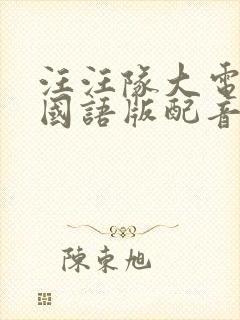 汪汪隊大電
國語版配音
陳東旭